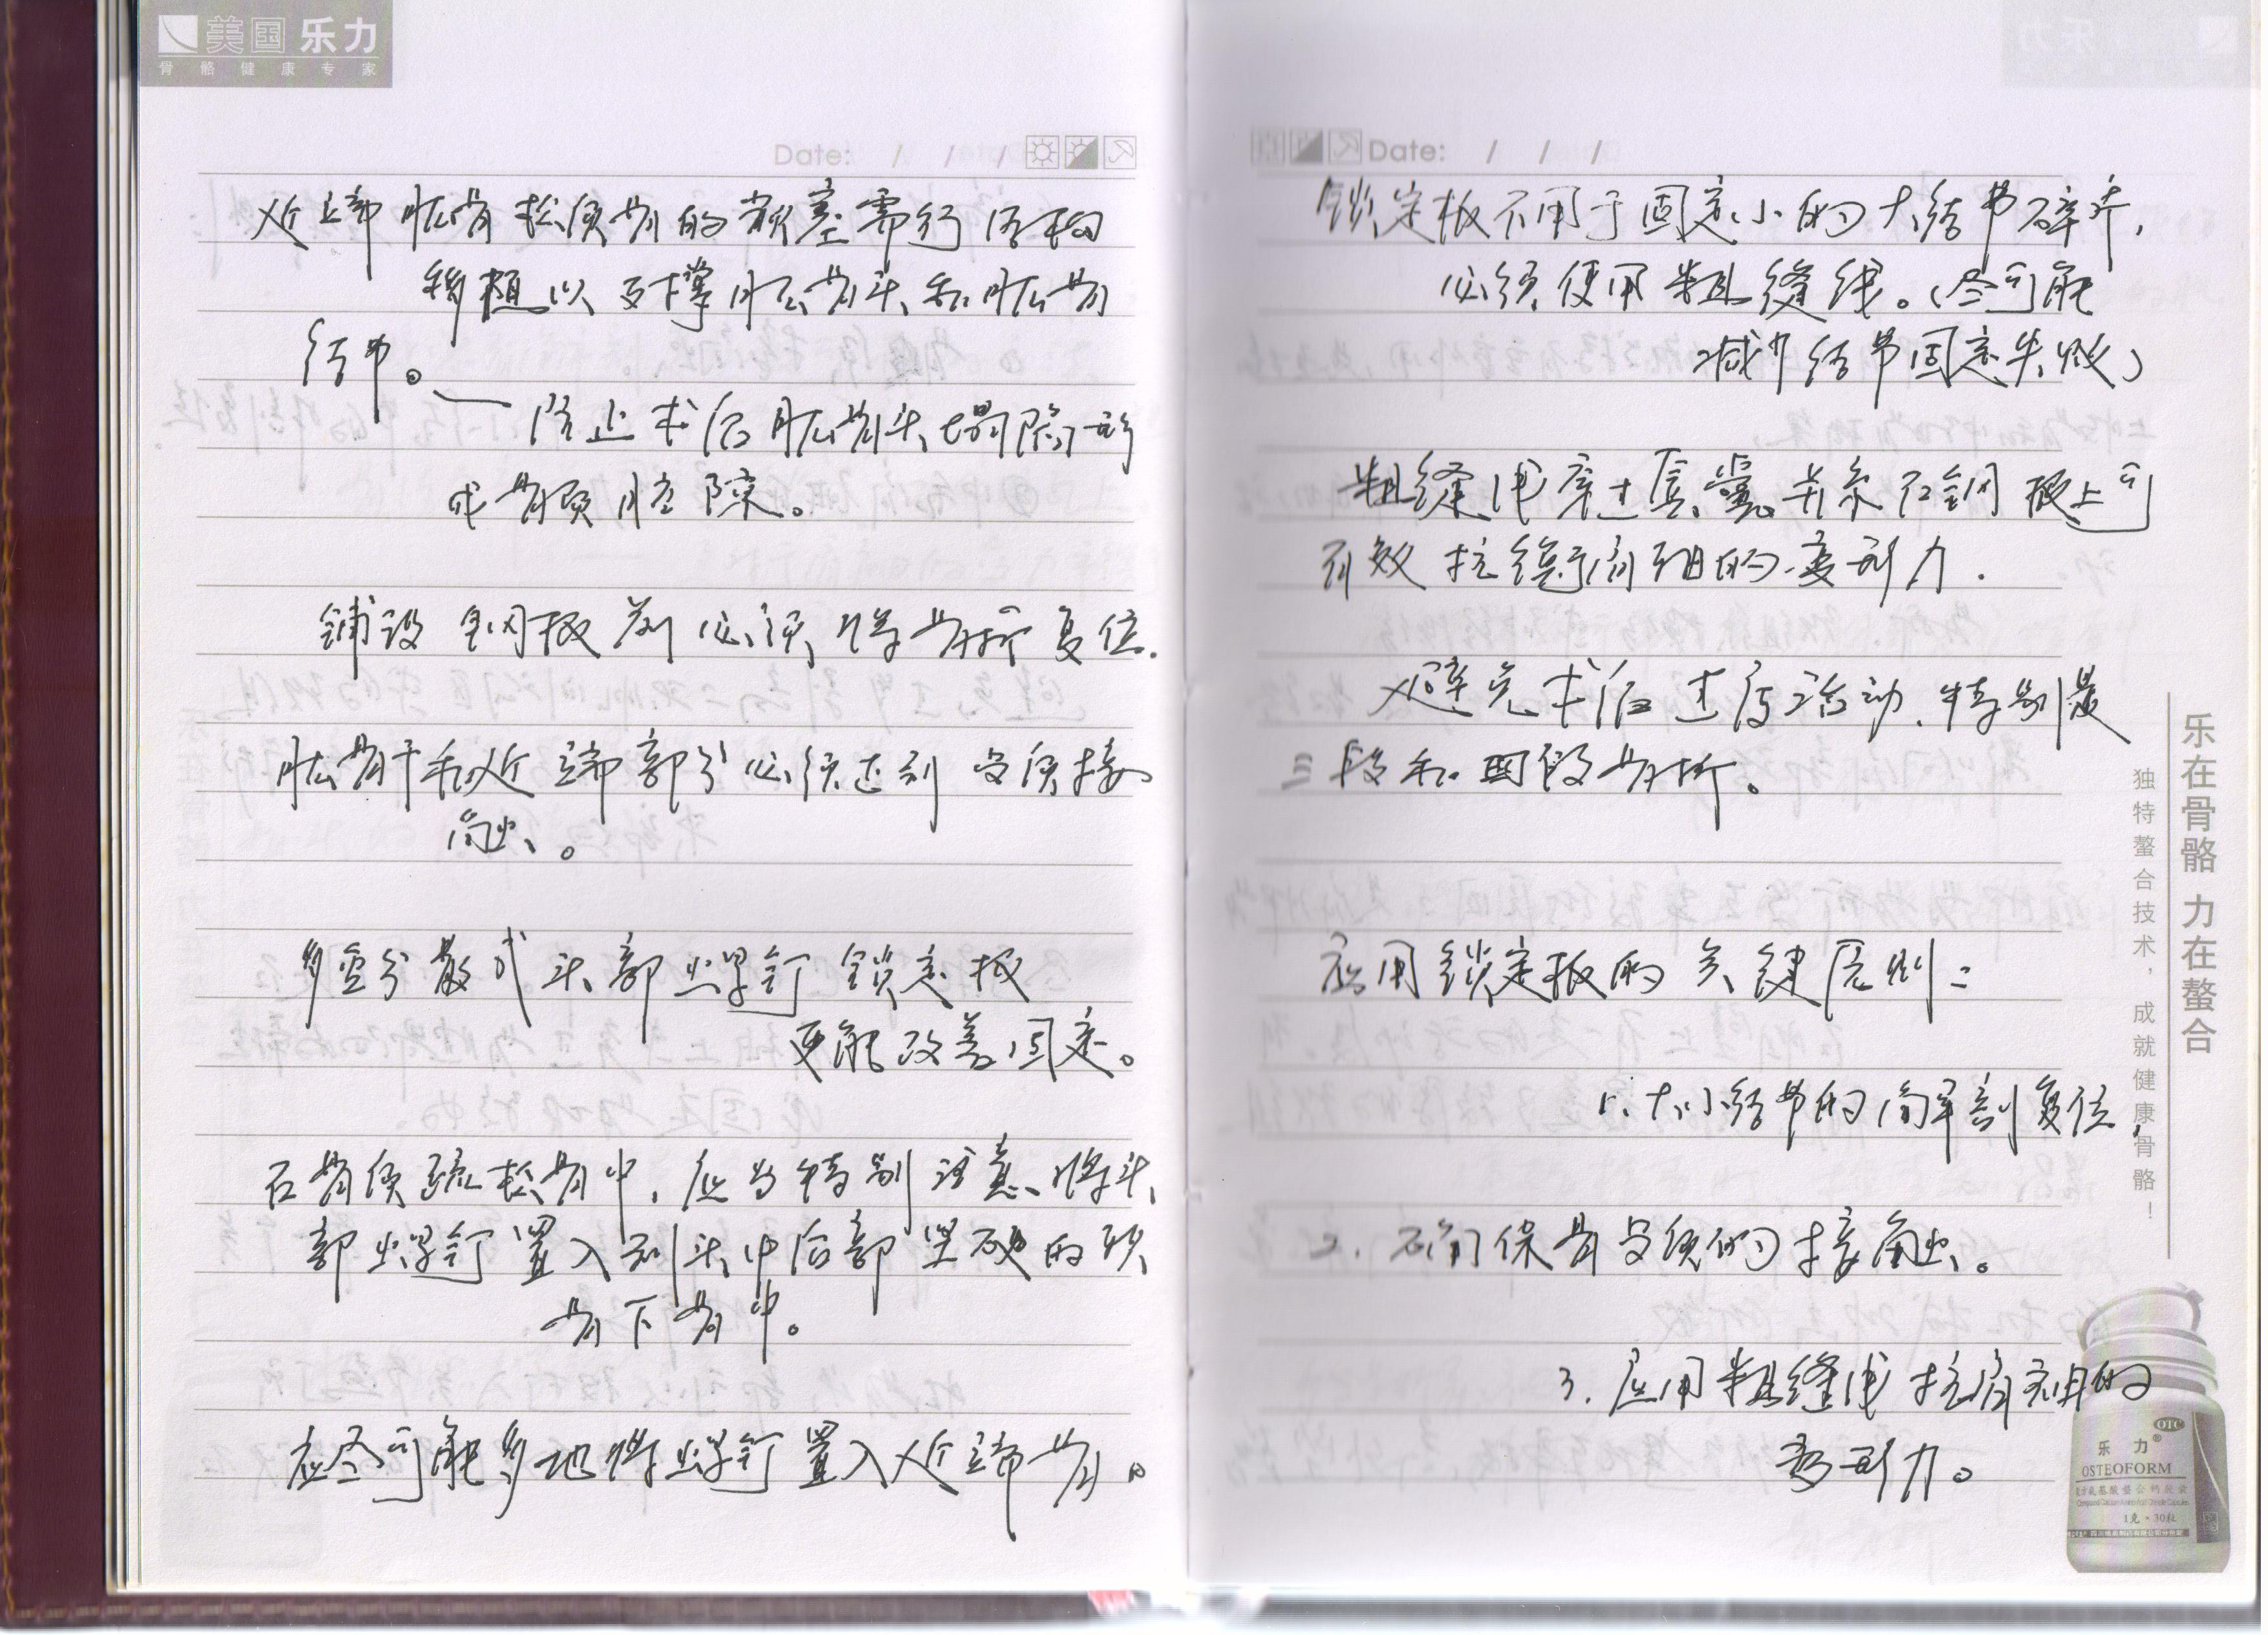 美国 乐力
骨骼健康专家
Date: / / /
近端肱骨松质骨的嵌塞需行结构
移植以支撑肱骨头和肱骨
结节。
防止术后肱骨头塌陷形
成骨质腔隙。
铺设钢板前必须将骨折复位.
肱骨干和近端部分必须达到皮质接
触。
多空分散式头部螺钉锁定板
更能改善固定。
在骨质疏松骨中,应当特别注意将头
部螺钉置入到头中后部坚硬的软
骨下骨中。
应尽可能多地将螺钉置入近端骨。
Date: / / /
锁定板不用于固定小的大结节碎片,
必须使用粗缝线。(尽可能
减少结节固定失败)
粗缝线穿过肩囊并系在钢板上可
有效抗肩袖的变形力.
避免术后过度活动.特别是
三段和四段骨折。
应用锁定板的关键原则:
1、大小结节的解剖复位,
2.确保骨皮质的接触。
3.应用粗缝线抗肩袖的
变形力。
乐在骨骼 力在螯合
独特螯合技术,成就健康骨骼!
OTC
乐力®
OSTEOFORM
1克·30粒